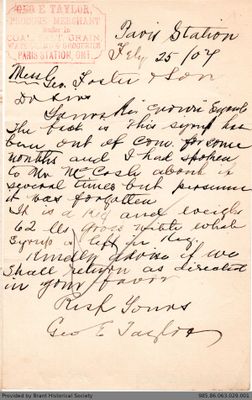 GEO E TAYLOR,
PRODUCE MERCHANT
Dealer In
COAL, SALT, GRAIN
PARIS STATION, ONT.
Paris Station
Feby 25/07
Mess Geo. Foster & Son
Dr Sirs
Yours Re "Crown" Syrup
The best is this syrup has
been out of com. for some
months and I had spoken
to Mr McCosh about it
several times but presume
it was forgotten
It is a keg and weighs
62 lbs gross with what
Syrup is left in Keg
Kindly advise if we
shall return as directed
in your favor
Resp Yours
Geo E Taylor
Provided by Brant Historical Society
985.86.063.029.001